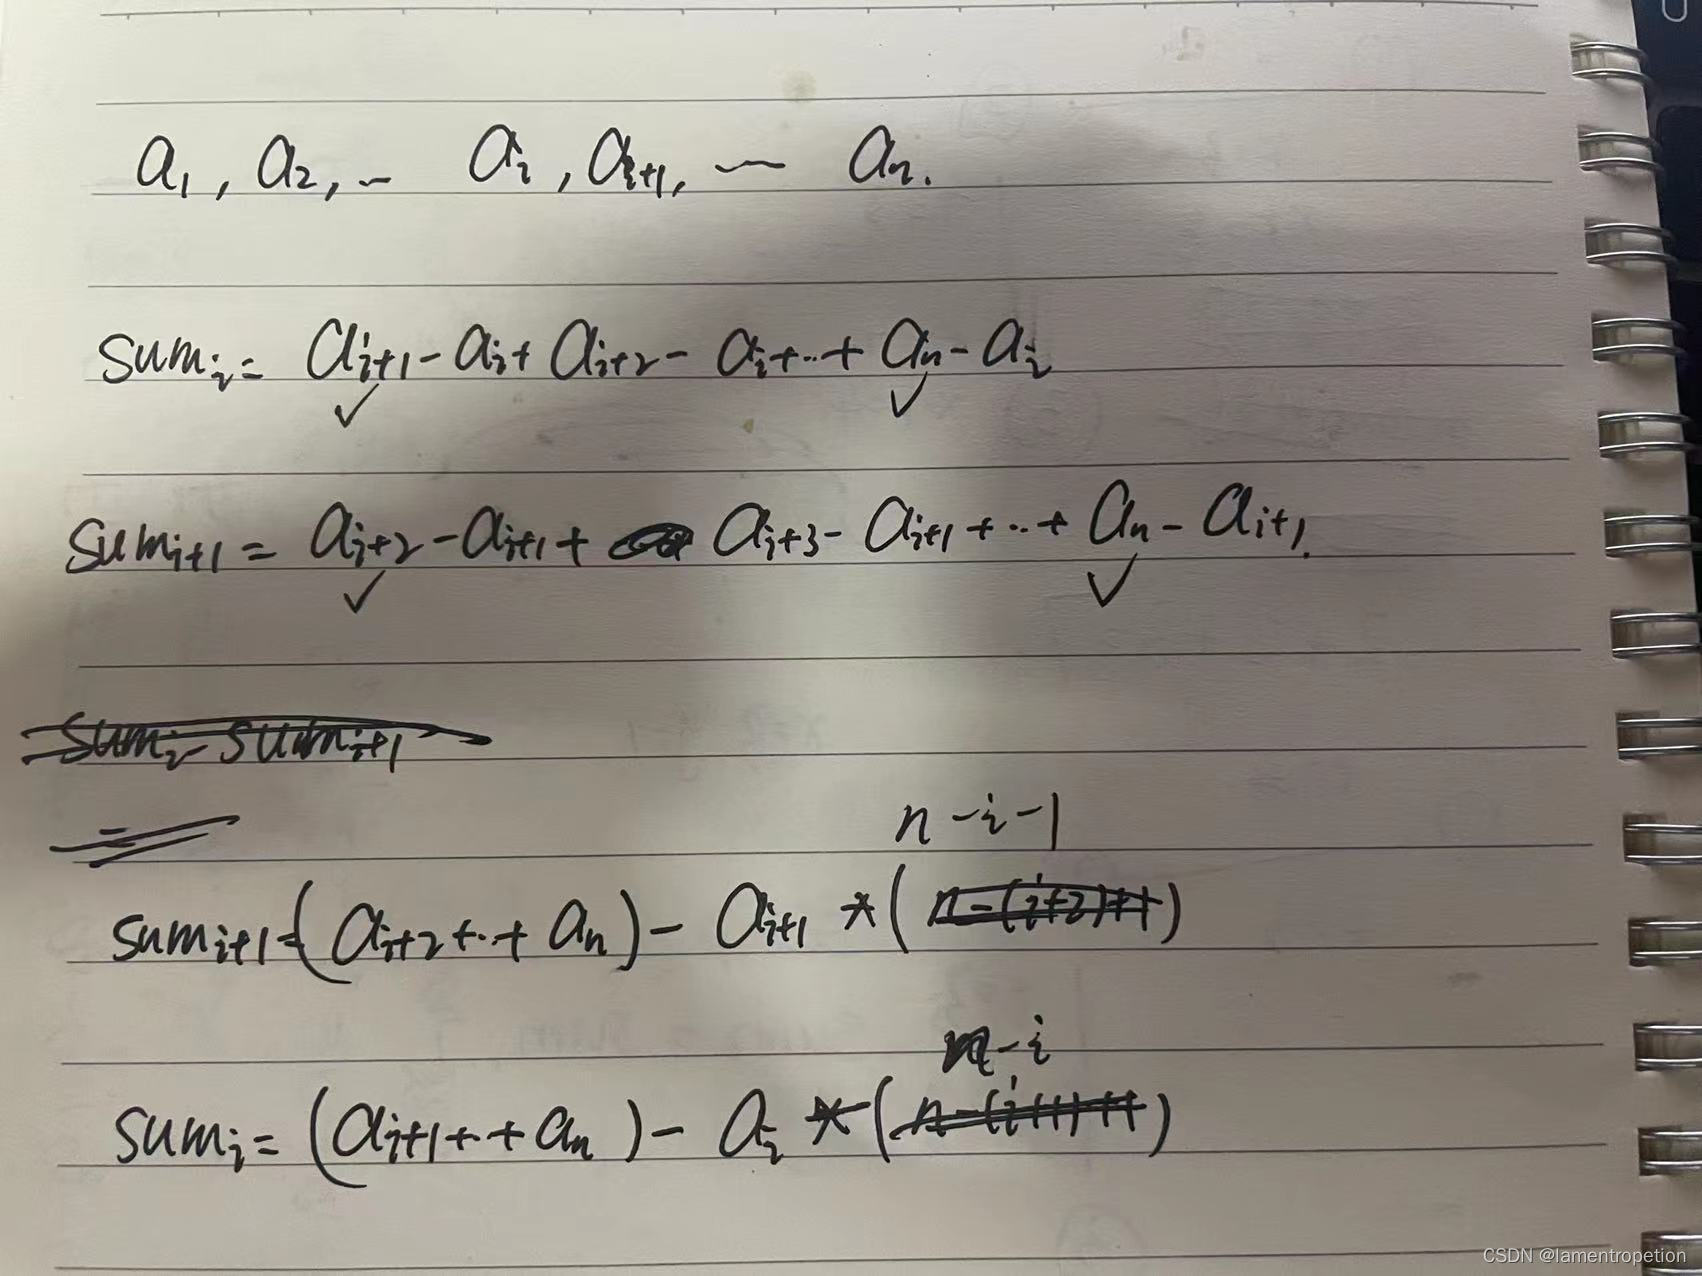 a₁, a₂, -- aᵢ, aᵢ₊₁, --- aₙ.
sumᵢ = aᵢ₊₁ - aᵢ + aᵢ₊₂ - aᵢ + ·· + aₙ - aᵢ
✓ ✓
sumᵢ₊₁ = aᵢ₊₂ - aᵢ₊₁ + aᵢ₊₃ - aᵢ₊₁ + ·· + aₙ - aᵢ₊₁.
✓ ✓
sumᵢ - sumᵢ₊₁
=
n-i-1
sumᵢ₊₁ = (aᵢ₊₂ + ·· + aₙ) - aᵢ₊₁ * (n-(i+2)+1)
n-i
sumᵢ = (aᵢ₊₁ + ·· + aₙ) - aᵢ * (n-(i+1)+1)
CSDN @lamentropetion